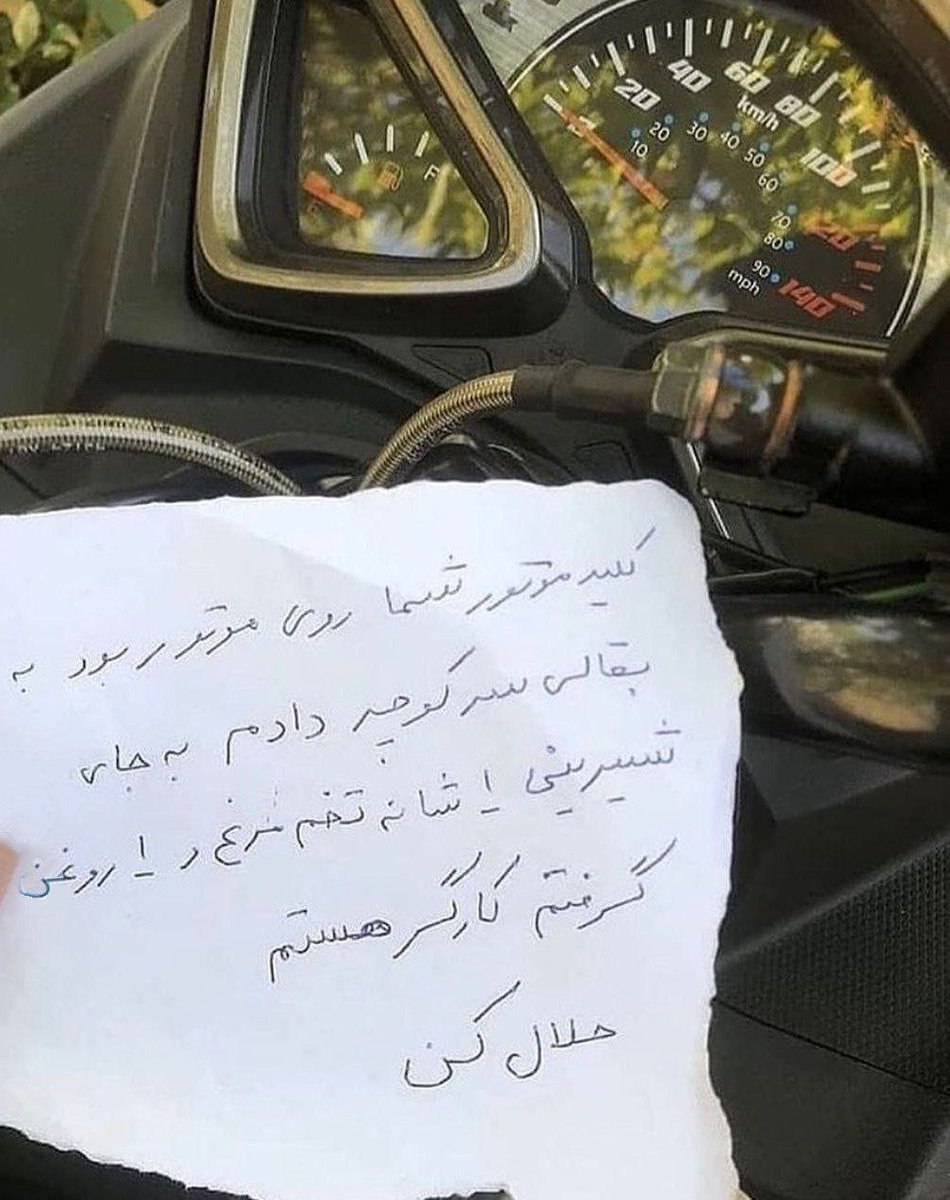 F
20 40 60 80 100 120 140
km/h
10 20 30 40 50 60 70 80 90
mph
کلید موتور شما روی موتور بود به
بقالی سر کوچه دادم به جای
شیرینی ۱ شانه تخم مرغ و ۱ روغن
گرفتم کارگر هستم
حلال کن